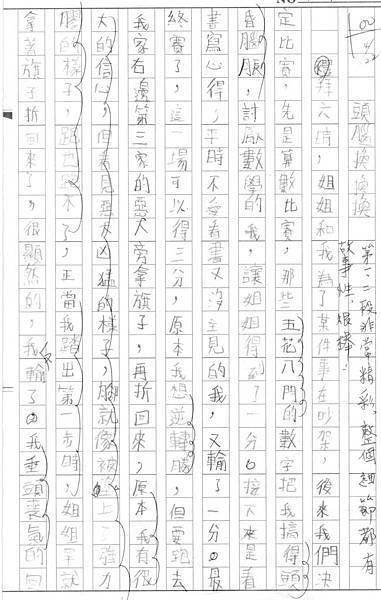 NO
100
頭腦換換
第一、二段非常精彩，整個細節都有
故事性，很棒！
禮拜六時，姐姐和我為了某件事在吵架，後來我們決
定比賽，先是算數比賽，那些五花八門的數字把我搞得頭
昏腦脹，討厭數學的我，讓姐姐得到了一分。接下來是看
書寫心得，平時不愛看書又沒主見的我，又輸了一分。最
終賽了，這一場可以得三分，原本我想逆轉勝，但要跑去
我家右邊第三家的惡犬旁拿旗子，再折回來，原本我有很
大的信心，但看見惡犬凶猛的樣子，腳就像被塗上強力
膠的樣子，跑也跑不了，正當我踏出第一步時，姐姐早就
拿著旗子折回來了，很顯然的，我輸了。我垂頭喪氣的向